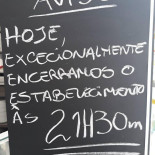 AVISO
HOJE,
EXCECIONALMENTE
ENCERRAMOS O
ESTABELECIMENTO
ÀS
21H30m